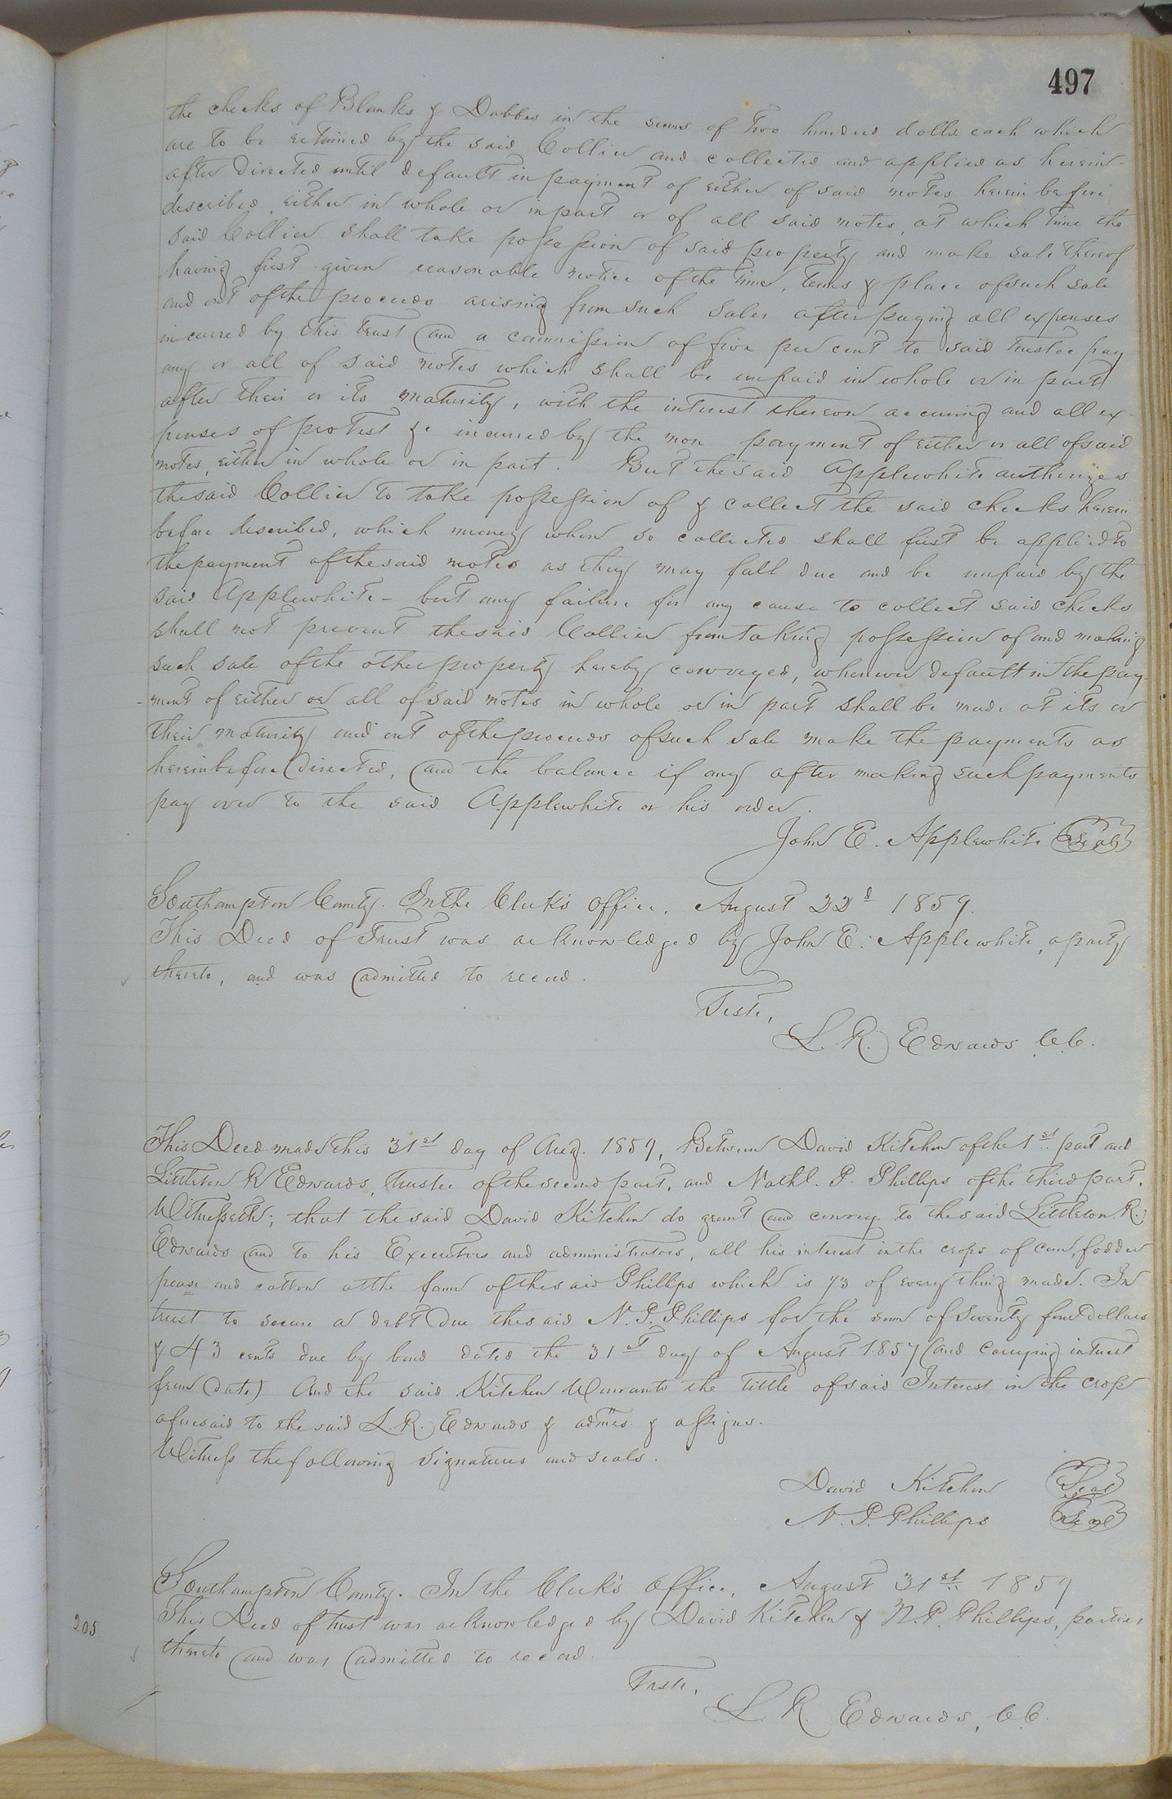 497
the checks of Blanks & Dobbs in the sums of two hundred dolls. each which
are to be retained by the said Collier and collected and applied as herein-
after directed until default in payment of either of said notes hereinbefore
described, either in whole or in part or of all said notes, at which time the
said Collier shall take possession of said property and make sale thereof
having first given reasonable notice of the time, terms & place of such sale
and out of the proceeds arising from such sales after paying all expenses
incurred by this trust and a commission of five per cent to said trustee pay
any or all of said notes which shall be unpaid in whole or in part
after their or its maturity, with the interest thereon accruing and all ex-
penses of protest &c incurred by the non payment of either or all of said
notes, either in whole or in part. But the said Applewhite authorizes
the said Collier to take possession of & collect the said checks herein
before described, which money when so collected shall first be applied to
the payment of the said notes as they may fall due and be unpaid by the
said Applewhite - but any failure for any cause to collect said checks
shall not prevent the said Collier from taking possession of and making
such sale of the other property hereby conveyed, whenever default in the pay-
-ment of either or all of said notes in whole or in part shall be made at its or
their maturity and out of the proceeds of such sale make the payments as
hereinbefore directed, and the balance if any after making such payments
pay over to the said Applewhite or his order.
John E. Applewhite (Seal)
Southampton County. In the Clerk's Office, August 22d 1859.
This Deed of Trust was acknowledged by John E. Applewhite, a party
thereto, and was admitted to record.
Teste,
L. R. Edwards C.C.
This Deed made this 31st day of Aug. 1859, Between David Kitchen of the 1st part and
Littleton R Edwards, trustee of the second part, and Nathl. P. Phillips of the third part.
Witnesseth; that the said David Kitchen do grant and convey to the said Littleton R.
Edwards and to his Executors and administrators, all his interest in the crops of corn, fodder
pease and cotton at the farm of the said Phillips which is 1/3 of everything made. In
trust to secure a debt due the said N. P. Phillips for the sum of Seventy four Dollars
& 43 cents due by bond dated the 31st day of August 1857 (and carrying interest
from date) And the said Kitchen Warrants the tittle of said Interest in the crop
aforesaid to the said L. R. Edwards & admrs. & assigns.
Witness the following signatures and seals.
David Kitchen (Seal)
N. P. Phillips (Seal)
Southampton County. In the Clerk's Office, August 31st 1859
205 This Deed of trust was acknowledged by David Kitchen & N. P. Phillips, parties
thereto and was admitted to record.
Teste,
L R. Edwards, C.C.